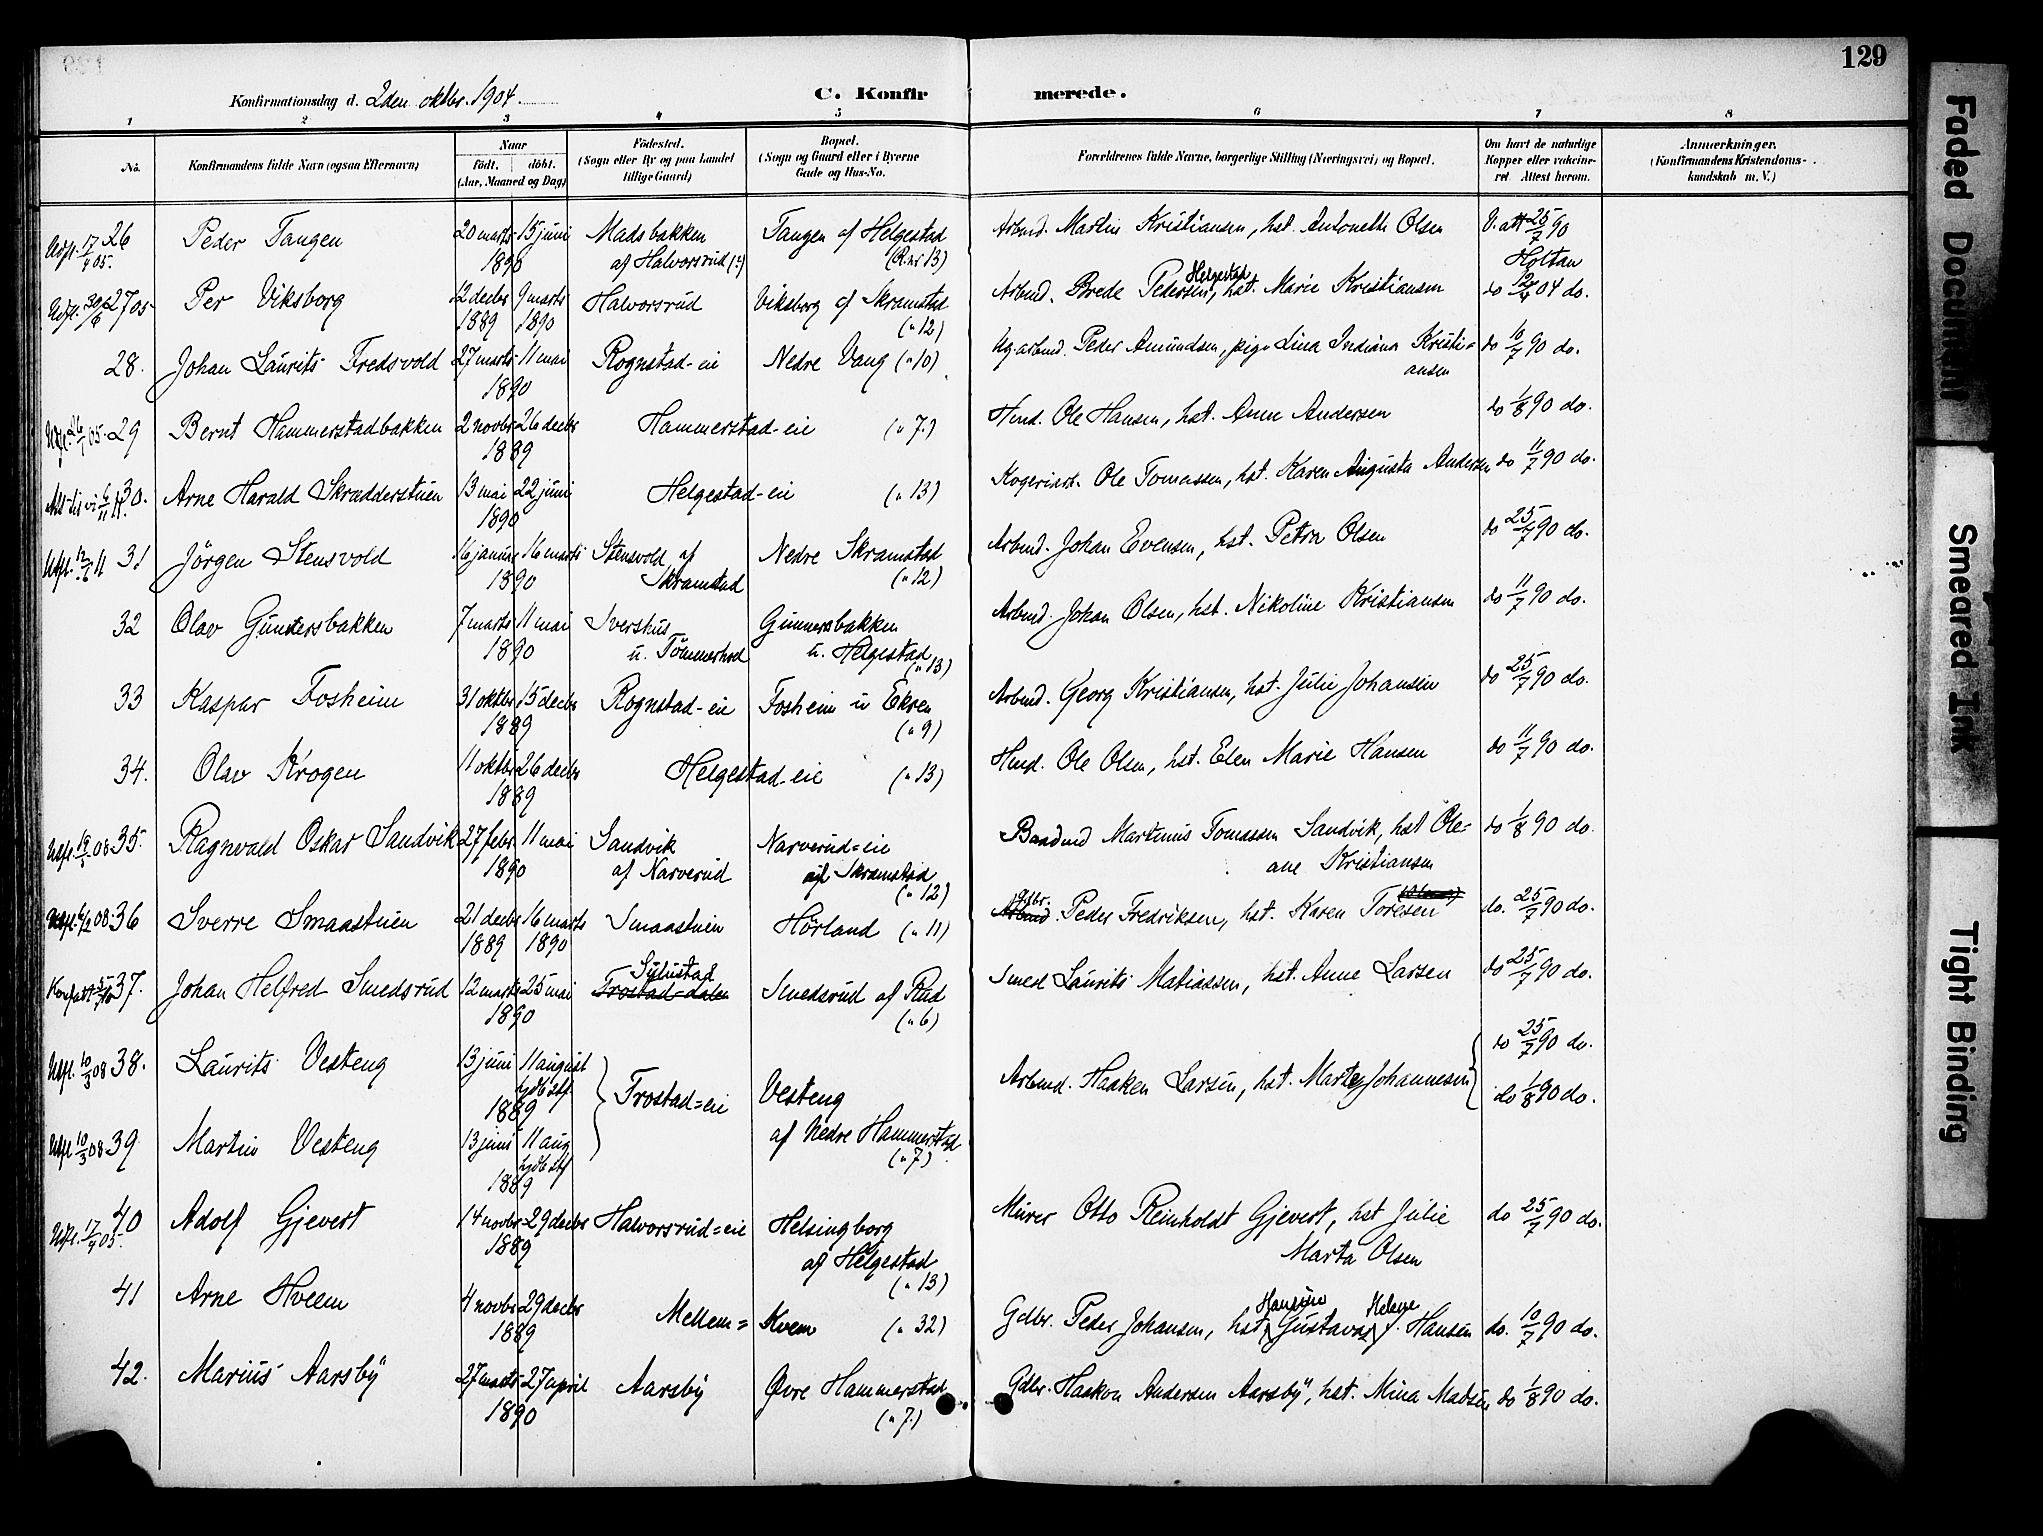 129
Konfirmationsdag d. 2den oktbr. 1904.
C. Konfirmerede.
1 2 3 4 5 6 7 8
No.
Konfirmandens fulde Navn (ogsaa Efternavn)
Naar
født. døbt.
(Aar, Maaned og Dag)
Fødested.
(Sogn eller By og paa Landet
tillige Gaard)
Bopæl.
(Sogn og Gaard eller i Byerne
Gade og Hus-No.
Forældrenes fulde Navne, borgerlige Stilling (Næringsvei) og Bopæl.
Om havt de naturlige
Kopper eller vakcine-
ret Attest herom.
Anmærkninger.
(Konfirmandens Kristendoms-
kundskab m. V.)
Udfl. 17/4 05. 26 Peder Tangen 20 marts 15 juni Madsbakken Tangen af Helgestad Arbmd. Martin Kristiansen, hst. Antonette Olsen V. att 25/7 90
1890 af Halvorsrud (:) (R.nr 13) Holtan
Udfl. 30/6 05 27 Per Viksborg 12 decbr 9 marts Halvorsrud Viksborg af Skramstad Arbmd. Brede Pedersen Helgestad, hst. Marie Kristiansen do 12/4 04 do.
1889 1890 (" 12)
28. Johan Laurits Fredsvold 27 marts 11 mai Rognstad-eie Nedre Vang (" 10) Ug. arbmd. Peder Amundsen, pige Lina Indiana Kristi= do 10/7 90 do.
1890 ansen
29 Bernt Hammerstadbakken 2 novbr 26 decbr Hammerstad-eie (" 7.) Hmd. Ole Hansen, hst. Anne Andersen do 1/8 90 do.
1889
30. Arne Harald Skrædderstuen 13 mai 22 juni Helgestad-eie (" 13) Ole Tomassen, hst. Karen Augusta Andersen do 11/7 90 do.
1890
31 Jörgen Stensvold 16 januar 16 marts Stensvold af Nedre Skramstad Arbmd. Johan Evensen, hst. Petra Olsen do 25/7 90 do.
1890 Skramstad (" 12)
32 Olav Gunnersbakken 7 marts 11 mai Svershus Gunnersbakken Arbmd. Johan Olsen, hst. Nikoline Kristiansen do 11/7 90 do.
1890 u. Tömmerhol u. Helgestad (" 13)
33 Kaspar Fosheim 31 oktbr 15 decbr Rognstad-eie Fosheim u Ekren Arbmd. Georg Kristiansen, hst. Julie Johansen do 25/7 90 do.
1889 (" 9)
34. Olav Krogen 11 oktbr 26 decbr Helgestad-eie (" 13) Hmd. Ole Olsen, hst. Elen Marie Hansen do 11/7 90 do.
1889
35. Ragnvald Oskar Sandvik 27 febr 11 mai Sandvik Narverud=eie Baadmd Martinus Tomassen Sandvik, hst Ole- do 1/8 90 do.
1890 af Narverud af Skramstad (" 12) ane Kristiansen
36 Sverre Smaastuen 21 decbr 16 marts Smaastuen Hörland (" 11) Gdbr. Arbmd. Peder Fredriksen, hst. Karen Toresen do. 25/7 90 do.
1889 1890
37. Johan Helfred Smedsrud 12 marts 25 mai Sylustad Frostad-dalen Smedsrud af Rud Smed Laurits Matiassen, hst. Anne Larsen do 25/7 90 do.
1890 (" 6)
Udfl. 10/3 08 38. Laurits Vesteng 13 juni 11 august Frostad=eie Vesteng Arbmd. Haaken Larsen, hst. Marte Johannesen do 25/7 90 do.
1889 hjdbst. af Nedre Hammerstad do 1/8 90 do.
Udfl 10/3 08 39 Martin Vesteng 13 juni 11 aug (" 7)
hjdbst
1889
Udfl. 17/4 05. 40 Adolf Gjevert 14 novbr 29 decbr Halvorsrud=eie Helsingborg Murer Otto Reinholdt Gjevert, hst Julie do 25/7 90 do.
1889 af Helgestad (" 13) Marta Olsen
41 Arne Hveem 4 novbr 29 decbr Mellem= Kvem (" 32) Gdbr. Peder Johansen, hst. Hansine Gustava Helene Hansen do. 10/7 90 do.
1889
42. Marius Aarsby 27 marts 27 april Aarsby Øvre Hammerstad Gdbr. Haakon Andersen Aarsby, hst. Mina Madsen do 1/8 90 do.
1890 (" 7.)
Faded Document
Smeared Ink
Tight Binding